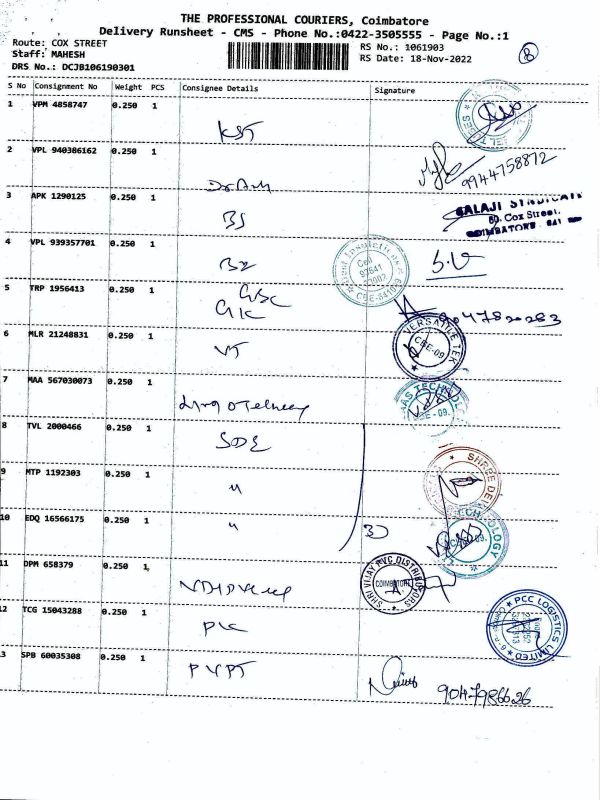 THE PROFESSIONAL COURIERS, Coimbatore
Delivery Runsheet - CMS - Phone No.:0422-3505555 - Page No.:1
Route: COX STREET
RS No.: 1061903
8
Staff: MAHESH
RS Date: 18-Nov-2022
DRS No.: DCJB106190301
S No Consignment No Weight PCS Consignee Details Signature
1 VPM 4858747 0.250 1
KST
2 VPL 940386162 0.250 1
9944758872
3 APK 1290125 0.250 1
BS
BALAJI SYNDICATE
60. Cox Street.
COIMBATORE. 641
4 VPL 939357701 0.250 1
BZ
Cell
CBE-6410
S.V
5 TRP 1956413 0.250 1
GBC
GK
9047820283
6 MLR 21248831 0.250 1
VT
VERSATILE TEK
CBE-09
7 MAA 567030073 0.250 1
TECHNOLOGY
CBE-09.
8 TVL 2000466 0.250 1
SDE
9 MTP 1192303 0.250 1
"
SHREE DE
10 EDQ 16566175 0.250 1
"
3
TECHNOLOGY
11 DPM 658379 0.250 1
SHRI VIJAY PVC DISTRIBUTORS
COIMBATORE
12 TCG 15043288 0.250 1
PLC
PCC LOGISTICS LIMITED
13 SPB 60035308 0.250 1
PVPT
9047986626